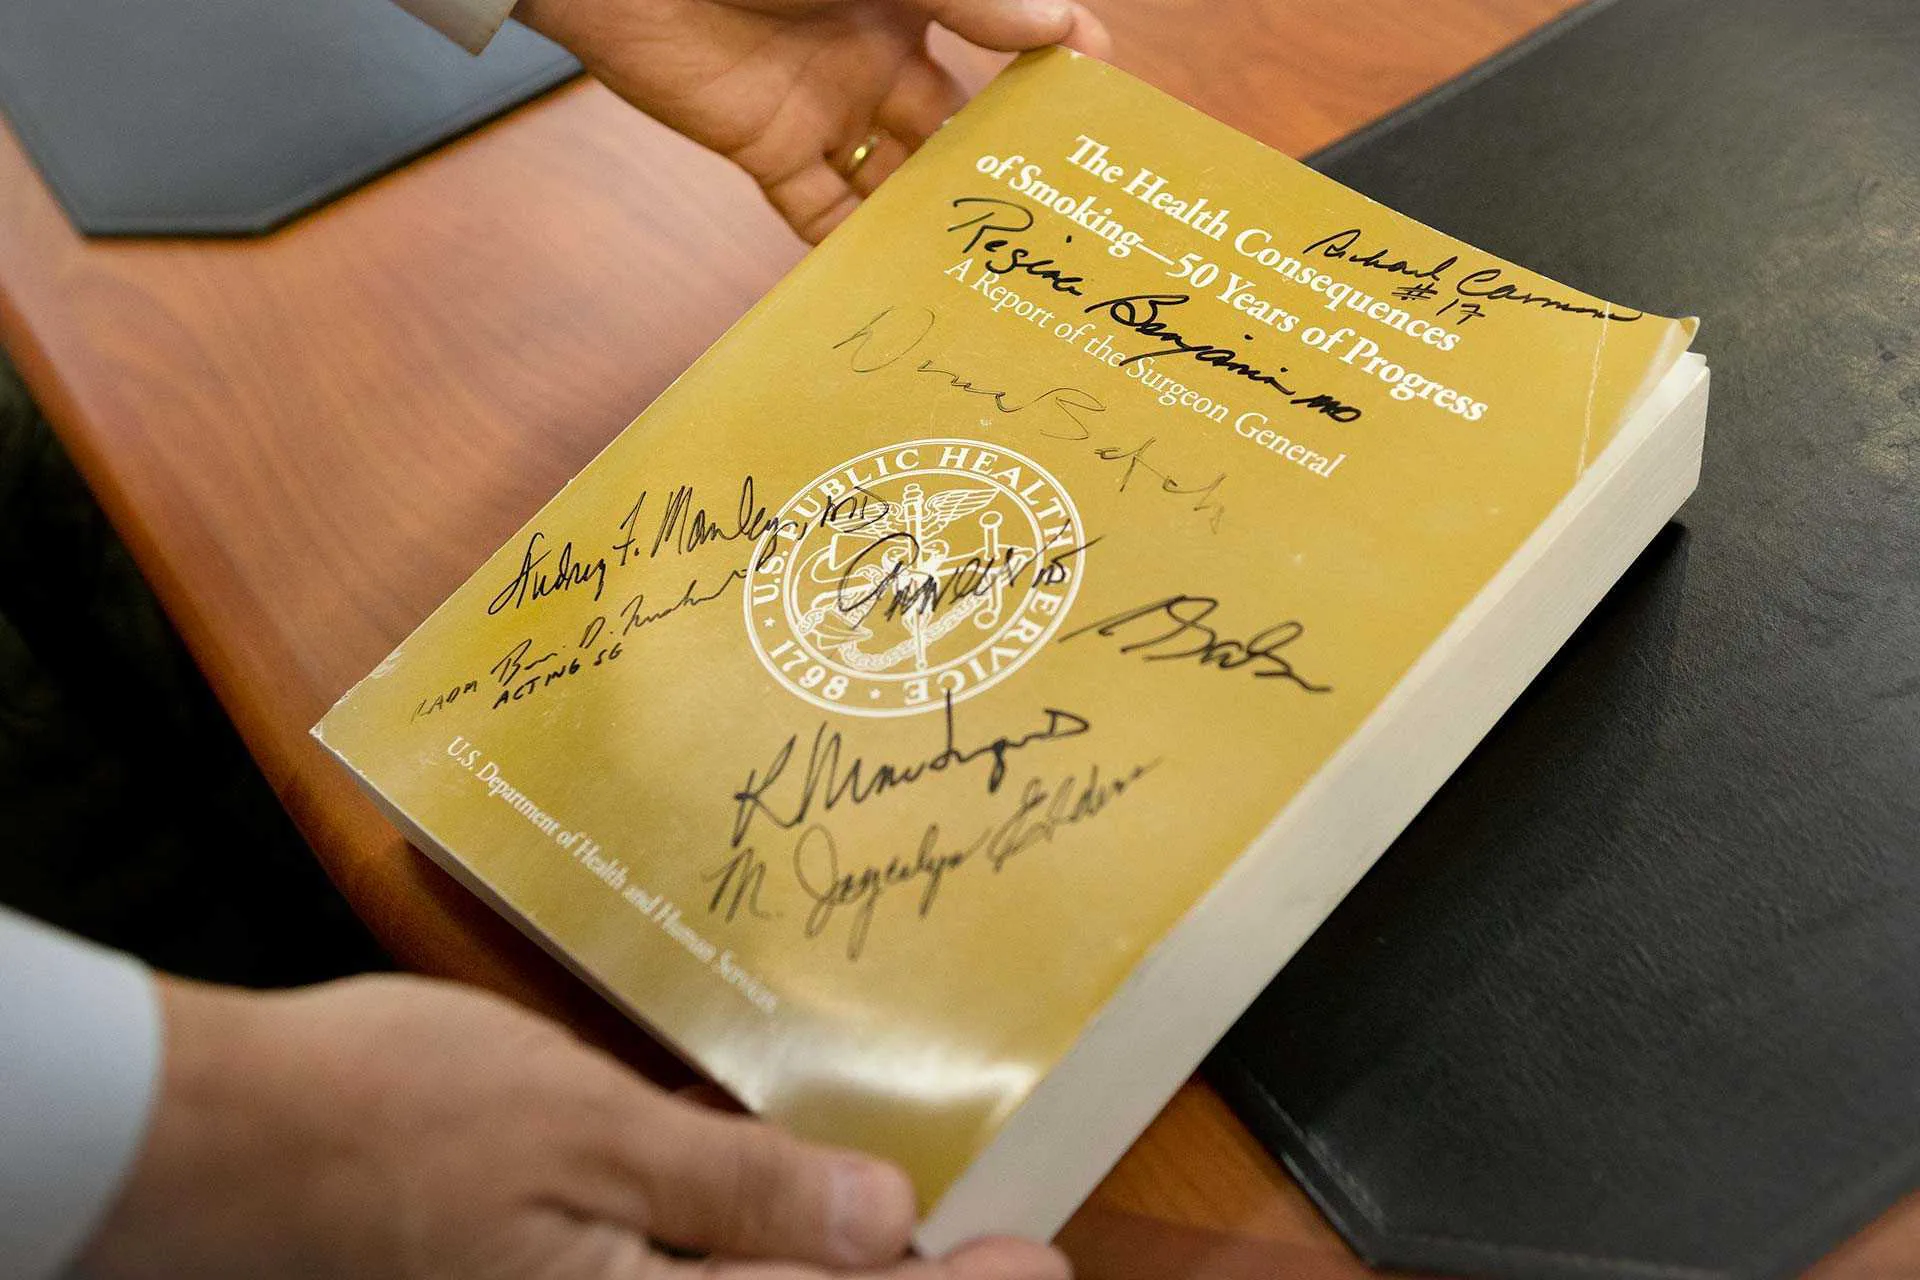 The Health Consequences
of Smoking—50 Years of Progress
A Report of the Surgeon General
Richard Carmona
#17
Regina Benjamin MD
Audrey F. Manley, MD
RADM
ACTING SG
U.S. PUBLIC HEALTH SERVICE
1798
M. Joycelyn Elders
U.S. Department of Health and Human Services